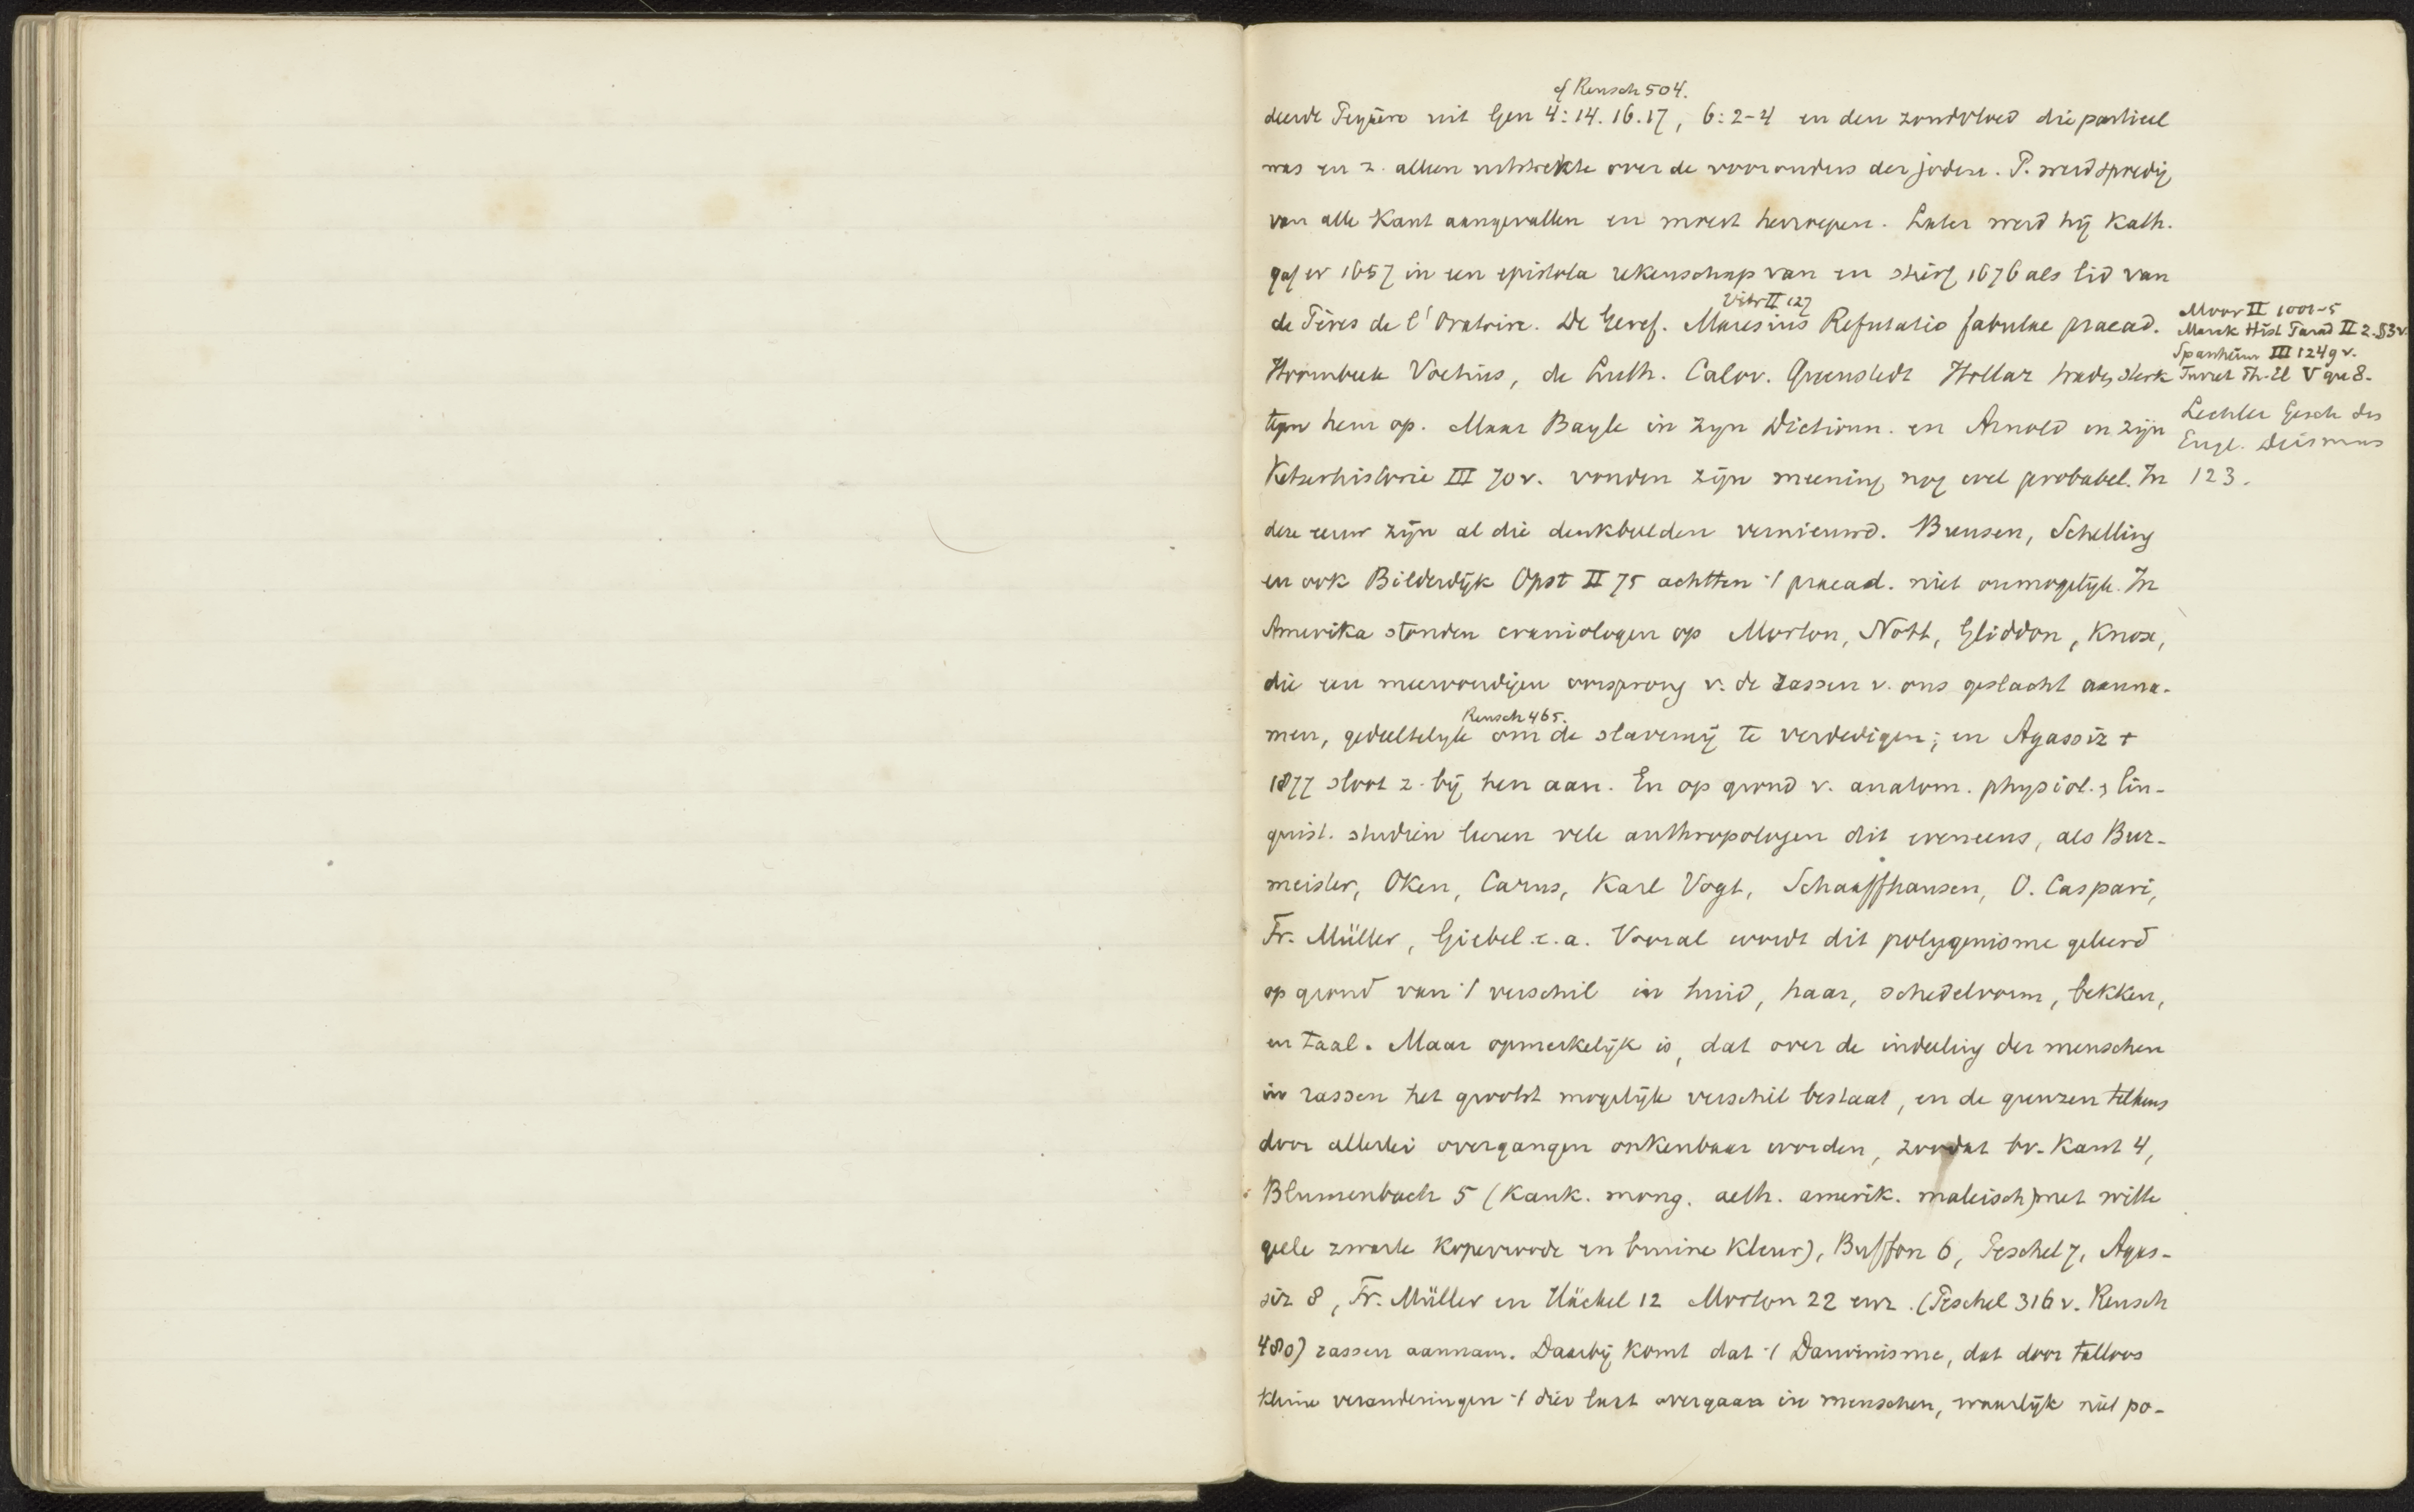 cf Reusch 504.
deerde Peyrère uit Gen 4:14. 16. 17, 6:2-4 en den zondvloed die partieel
was en z. alleen uitstrekte over de voorouders der joden. P. werd spoedig
van alle Kant aangevallen en moest herroepen. Later werd hij Kath.
gaf er 1657 in een epistola rekenschap van en stierf 1676 als lid van
Vitr II 127
de Pères de l'Oratoire. De Geref. Maresius Refutatio fabulae praead.
Hoornbeek Voetius, de Luth. Calov. Quenstedt Hollaz traden sterk
tegen hem op. Maar Bayle in zyn Dictionn. en Arnold in zijn
Ketserhistorie III 70 v. vonden zijn meening nog wel probabel. In
deze eeuw zijn al die denkbeelden vernieuwd. Bunsen, Schelling
en ook Bilderdijk Opst II 75 achtten 't praead. niet onmogelijk. In
Amerika stonden craniologen op Morton, Nott, Gliddon, Knox,
die een meervoudigen oorsprong v. de rassen v. ons geslacht aanna-
Reusch 465.
men, gedeeltelijk om de slavernij te verdedigen; en Agassiz †
1877 sloot z. bij hen aan. En op grond v. anatom. physiol. & lin-
guist. studiën leeren vele anthropologen dit eveneens, als Bur-
meister, Oken, Carus, Karl Vogt, Schaaffhausen, O. Caspari,
Fr. Müller, Giebel e.a. Vooral wordt dit polygenisme geleerd
op grond van 't verschil in huid, haar, schedelvorm, bekken,
en taal. Maar opmerkelijk is, dat over de indeeling der menschen
in rassen het grootst mogelijk verschil bestaat, en de grenzen telkens
door allerlei overgangen onkenbaar worden, zoodat bv. Kant 4,
Blumenbach 5 (Kauk. mong. aeth. amerik. maleisch) met witte
geele zwarte Koperroode en bruine Kleur), Buffon 6, Peschel 7, Agas-
siz 8, Fr. Müller en Häckel 12 Morton 22 enz. (Peschel 316 v. Reusch
480) rassen aannam. Daarbij komt dat 't Darwinisme, dat door talloos
kleine veranderingen 't dier laat overgaan in menschen, waarlijk niet po-
Moor II 1001-5
Marck Hist Parad II 2. §3 v.
Spanheim III 1249 v.
Turret Th. El V qu 8.
Lechler Gesch des
Engl. Deismus
123.